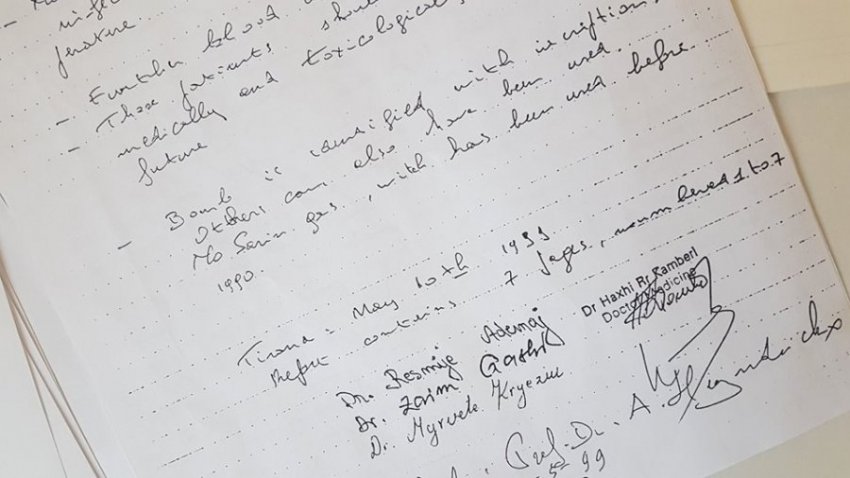 perature
- Further blood
- Those patients should
medically and toxicological
future
- Bomb is identified with inscriptions
Others can also have been used.
No Sarin gas, with has been used before
1990.
Tirana, May 10th 1999
Report contains 7 pages, numbered 1 to 7
Dr Haxhi R. Kamberi
Doctor Medicine
Dr. Resmije Ademaj
Dr. Zaim Gashi
Dr. Myrvete Kryeziu
Prof. Dr. A. Heyndrickx
99